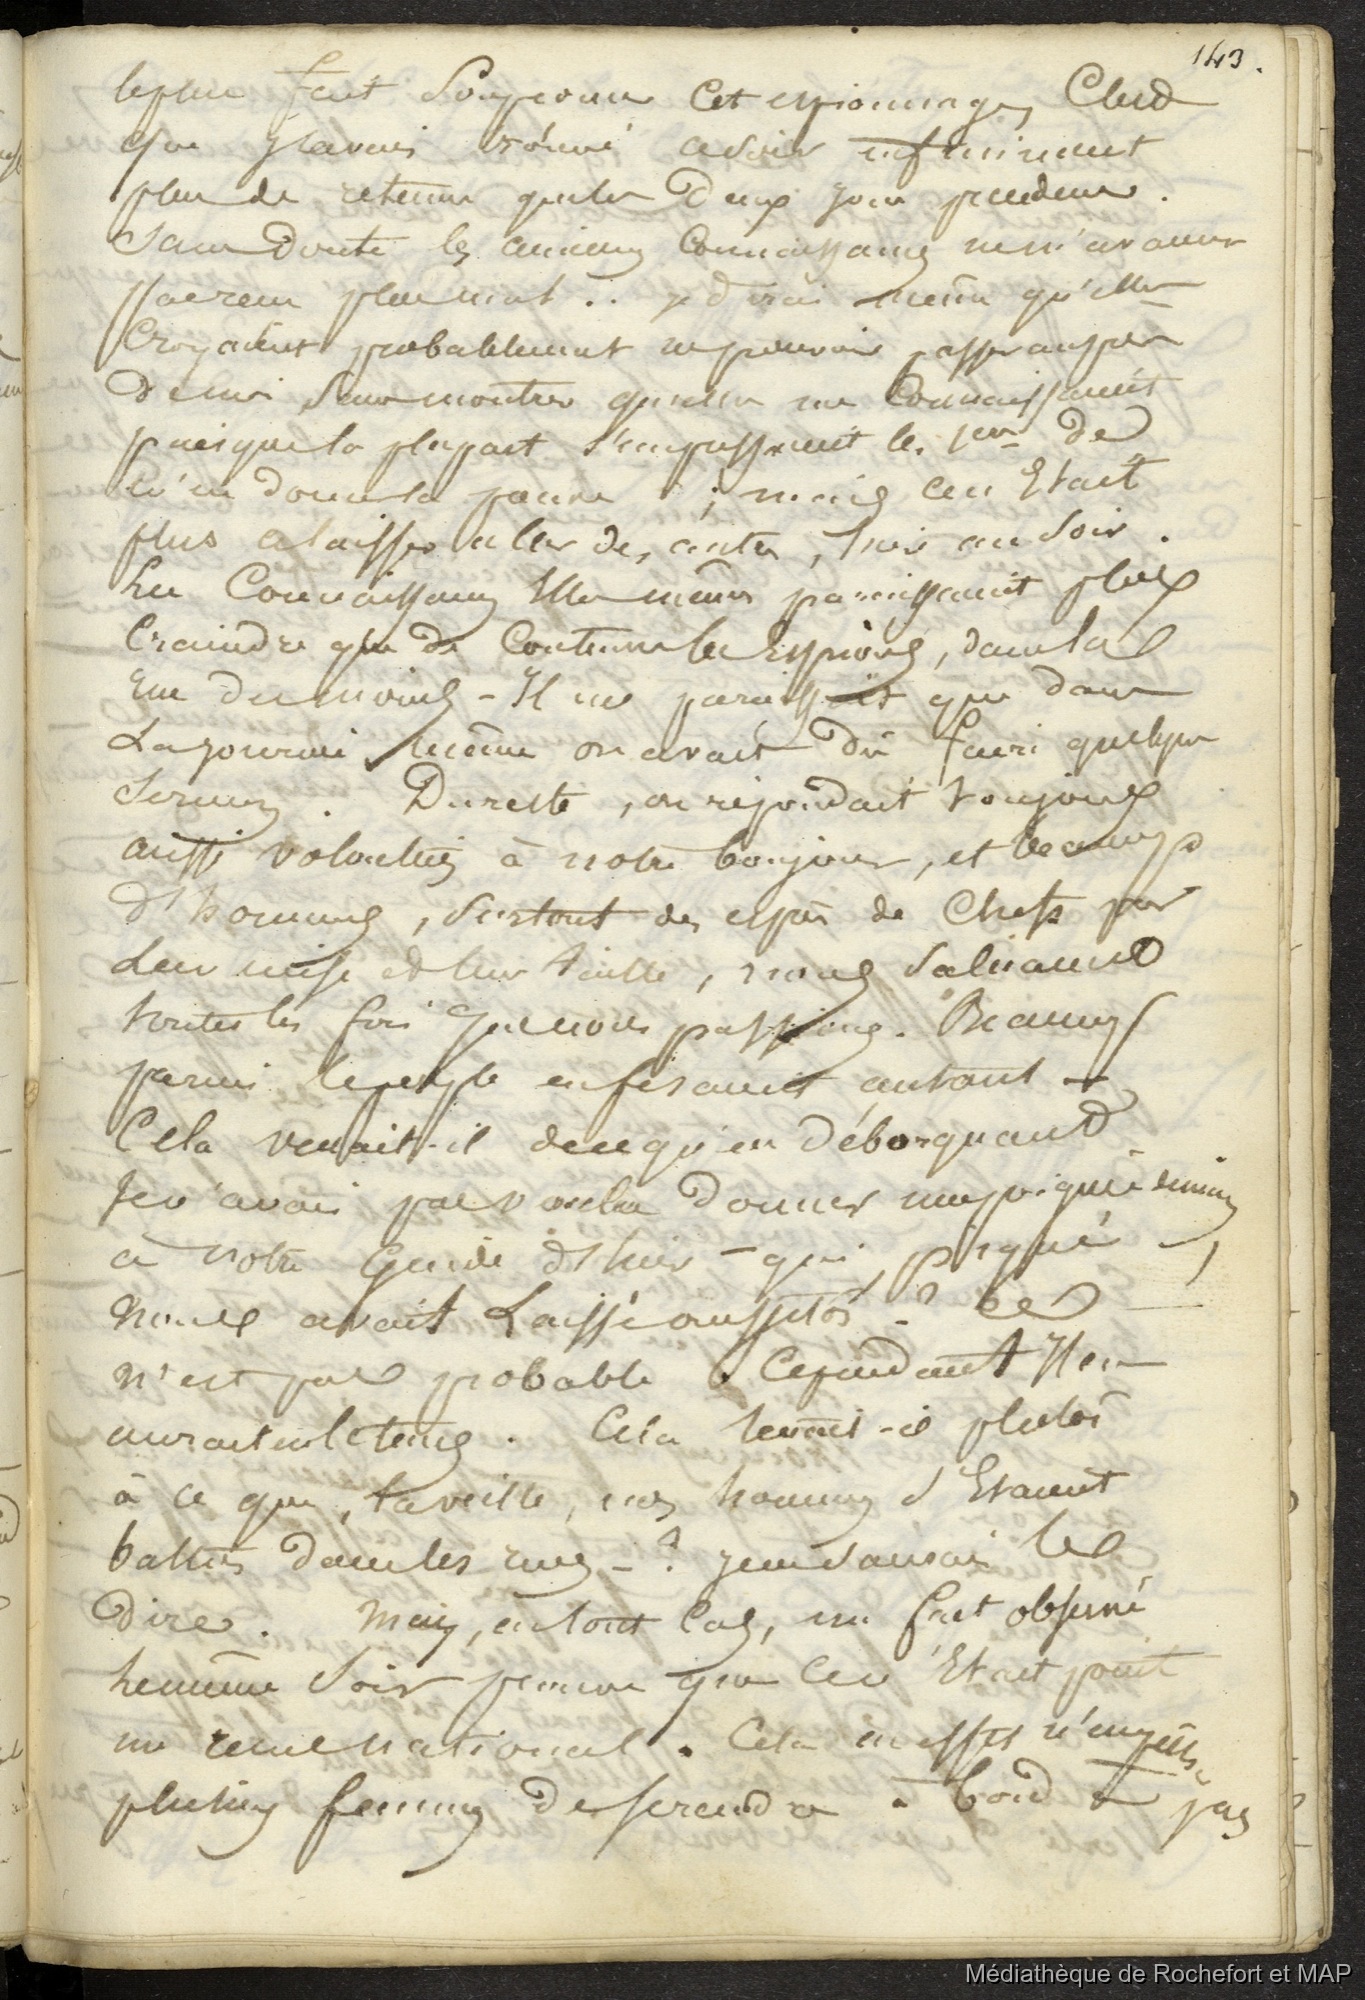 143.
le plus fait soupçonner cet espionnage, c'est
que j'avais trouvé avoir infiniment
plus de retenue que les deux jours précédens.
Sans doute les anciens connaissances ne m'avaient
parû plus mal .. je dirai même qu'elles
croyaient probablement ne pouvoir passer auprès
de moi sans montrer qu'elles me connaissaient
puisque la plupart s'empressaient les 1ers de
m'en donner la preuve ; mais ce n'était
plus à laisser aller des autres, hier au soir.
Les connaissances elles mêmes paraissaient plus
craindre que de coutume les espions, dans la
rue du moins - Il me paraissait que dans
la journée même on avait dû faire quelque
. Du reste, on répondait toujours
aussi volontiers à notre bonjour, et beaucoup
d'hommes, surtout des espèces de Chefs par
leur mise et leur taille, nous saluaient
toutes les fois que nous passions. Beaucoup
parmi le peuple en fesaient autant -
Cela venait-il de ce qu'en débarquant
je n'avais pas voulu donner une poignée de main
à notre Guide d'hier - qui, piqué,
nous avait laissé aussitôt - ? Ce
n'est pas probable. Cependant il en
aurait eu le tems. Cela tenait-il plutôt
à ce que, la veille, nos hommes s'étaient
battus dans les rues - ? je ne saurais le
dire. Mais, en tout cas, un fait observé
le même soir prouve que ce n'était point
un national. Cela en effet n'empêcha pas
plusieurs femmes de se rendre à bord